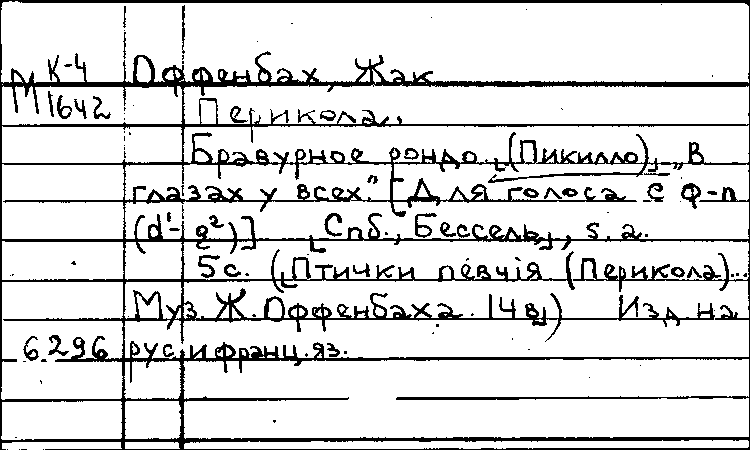 К-4 Оффенбах, Жак
М 1642 Перикола..
Бравурное рондо ⌞(Пикилло)⌟ „В
глазах у всех." [Для голоса с ф-п
(d¹-g²)] ⌞Спб., Бессель⌟, s.a.
5с. (⌞Птички певчія (Перикола)...
Муз. Ж. Оффенбаха. 14в⌟) Изд. на
6296 рус. и франц. яз.